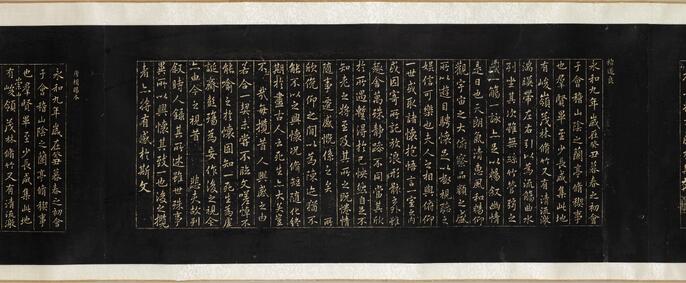 褚遂良
永和九年歲在癸丑暮春之初會
于會稽山陰之蘭亭脩稧事
也羣賢畢至少長咸集此地
有峻領茂林脩竹又有清流激
湍暎帶左右引以為流觴曲水
列坐其次雖無絲竹管弦之
盛一觴一詠亦足以暢敘幽情
是日也天朗氣清惠風和暢仰
觀宇宙之大俯察品類之盛
所以遊目騁懷足以極視聽之
娛信可樂也夫人之相與俯仰
一世或取諸懷抱悟言一室之內
或因寄所託放浪形骸之外雖
趣舍萬殊靜躁不同當其欣
於所遇暫得於己怏然自足不
知老之將至及其所之既惓情
隨事遷感慨係之矣向之所
欣俛仰之間以為陳迹猶不
能不以之興懷況脩短隨化終
期於盡古人云死生亦大矣豈
不痛哉每攬昔人興感之由
若合一契未嘗不臨文嗟悼不
能喻之於懷固知一死生為虛
誕齊彭殤為妄作後之視今
亦由今之視昔悲夫故列
敘時人錄其所述雖世殊事
異所以興懷其致一也後之攬
者亦將有感於斯文
永和九年歲在癸丑暮春之初會
于會稽山陰之蘭亭脩稧事
也羣賢畢至少長咸集此地
有峻領茂林脩竹又有清流激